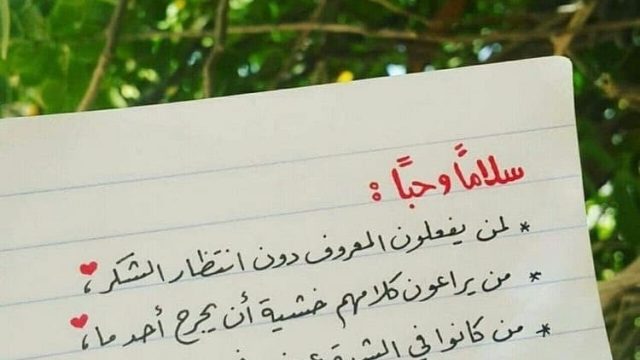 سلاماً و حباً :
* لمن يفعلون المعروف دون انتظار الشكر ،
* من يراعون كلامهم خشية أن يجرح أحد ما ،
* من كانوا في